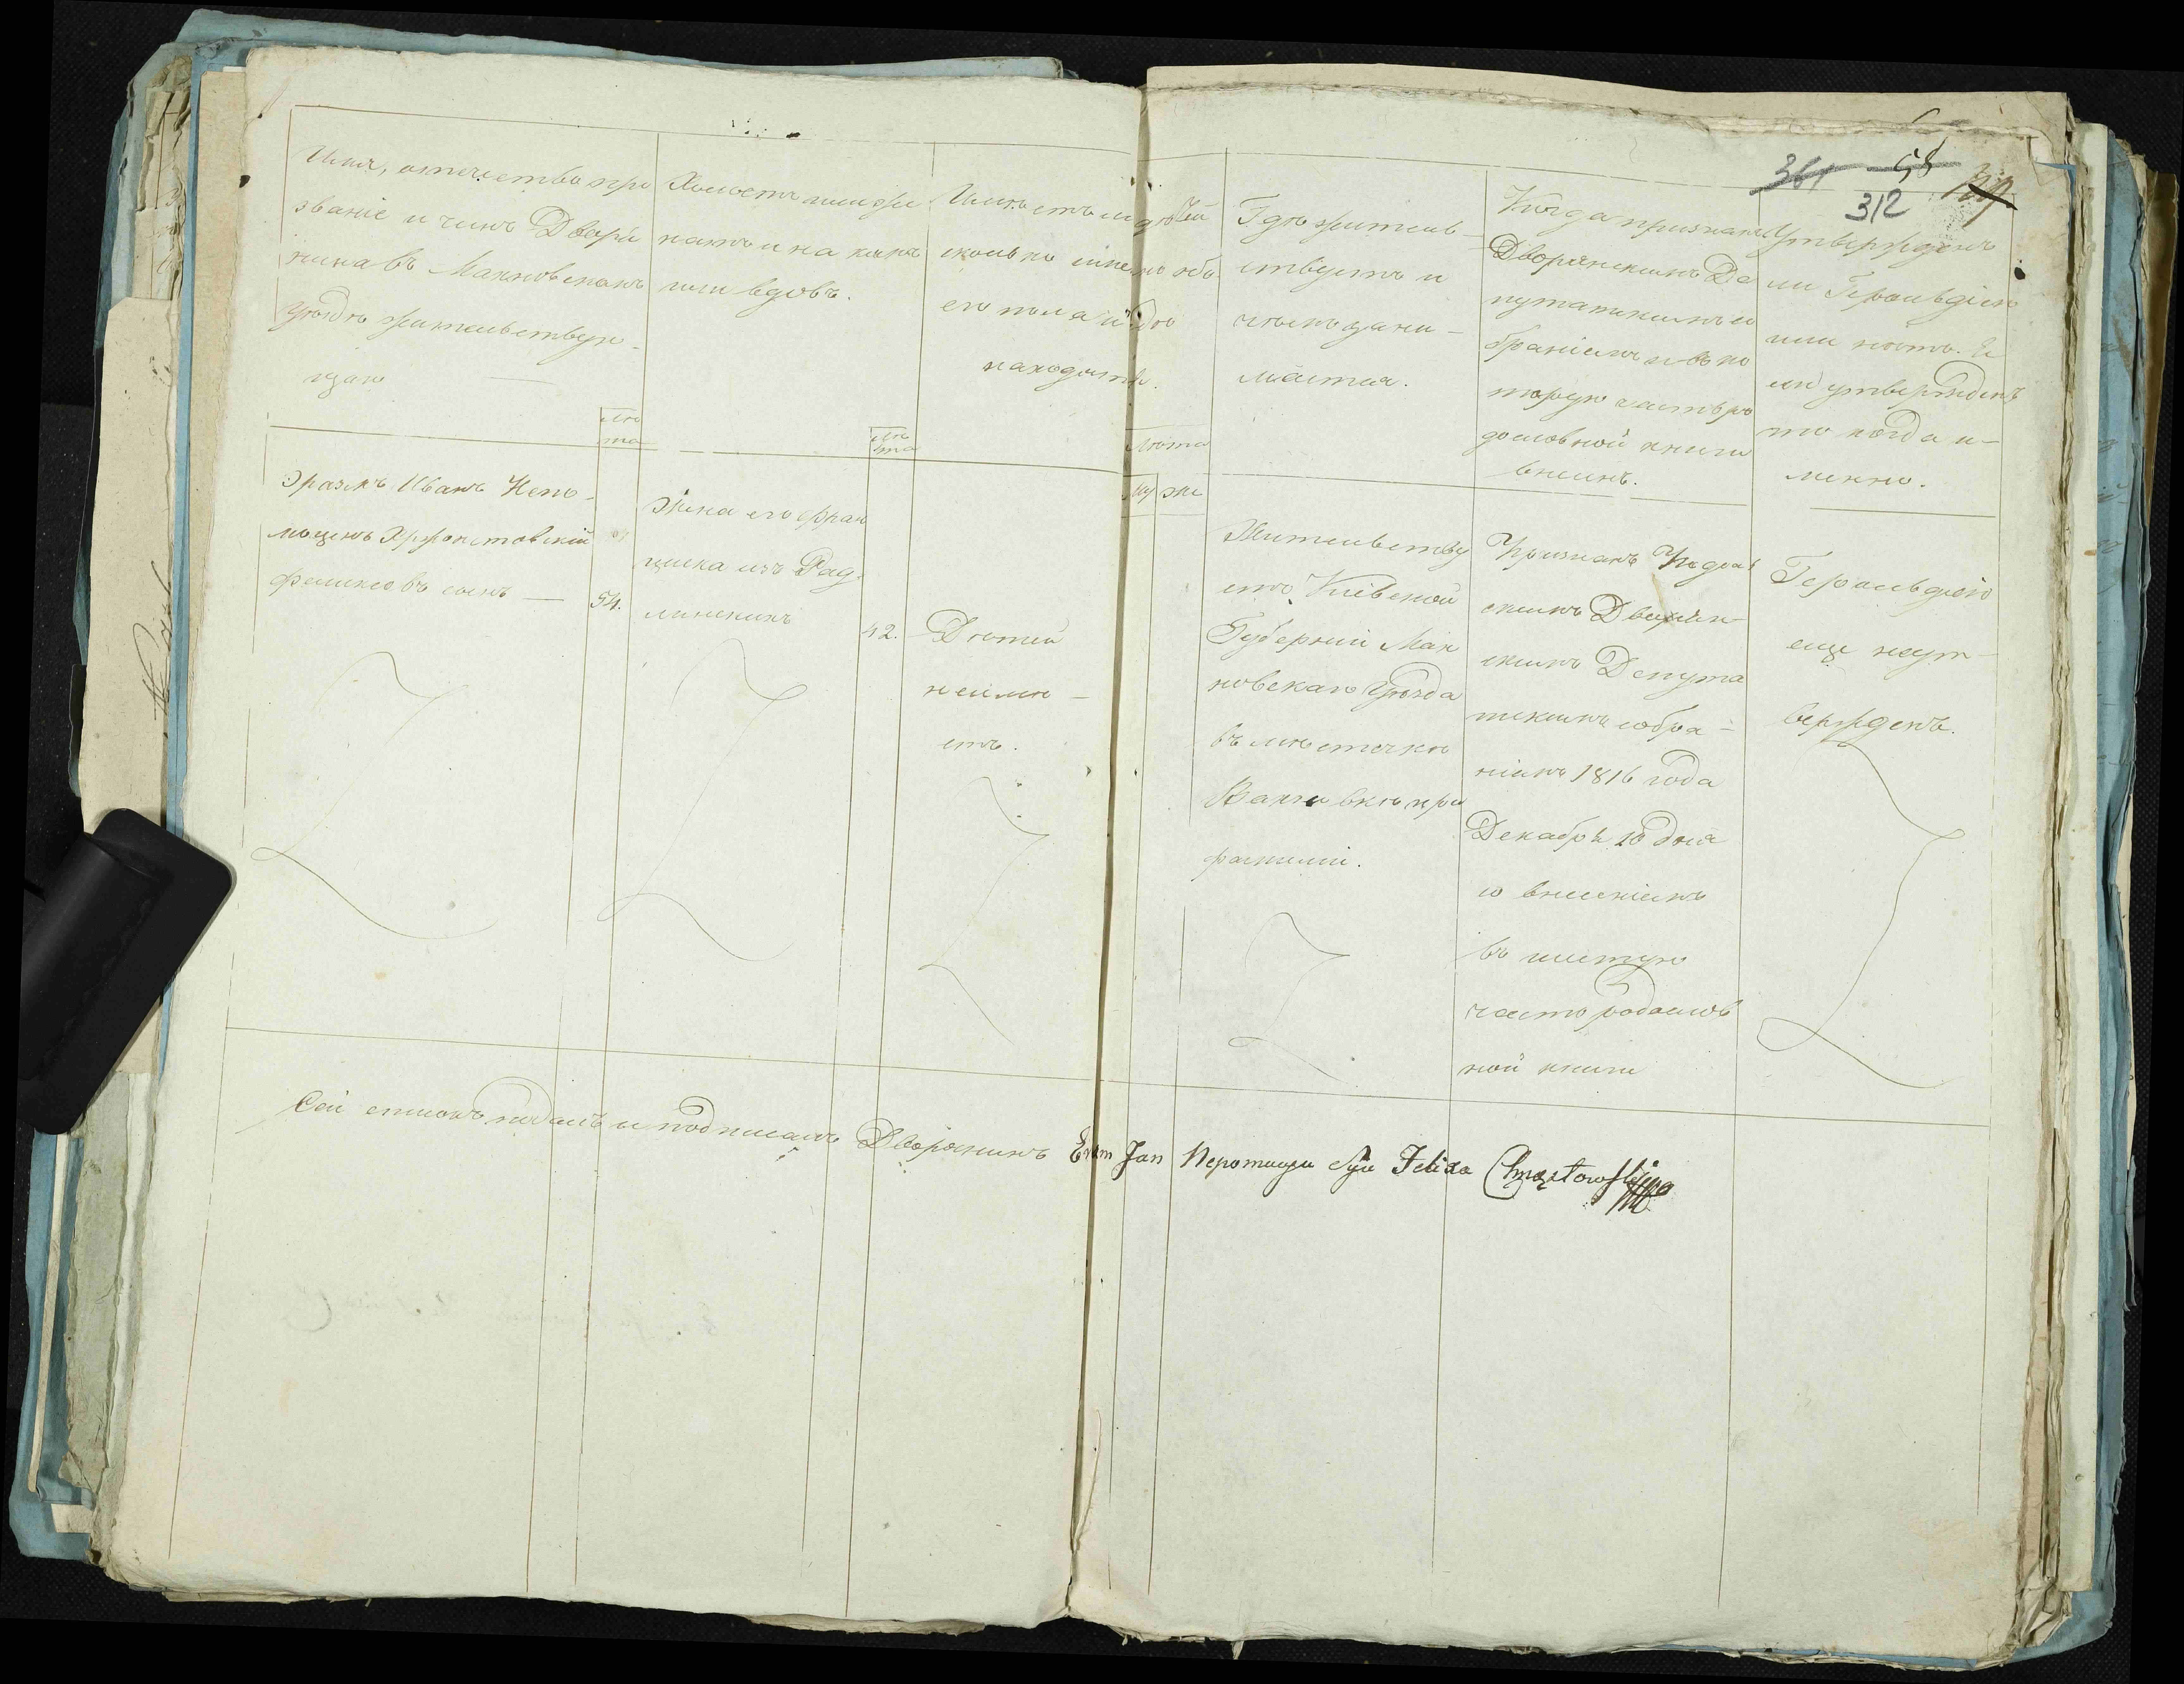 361 58
312
Имя, отечество про
званіе и чинъ Дворя
нина въ Махновскомъ
уѣздѣ жительствую-
щаго
Лѣ
та
Холостъ или же
натъ и на комъ
или вдовъ.
Лѣ
та
Имѣетъ ли дѣтей
сколько именно обо
его пола и гдѣ
находятся.
Лѣта
Муж
Гдѣ житель-
ствуетъ и
чѣмъ зани-
мается.
Когда признанъ
Дворянскимъ Де
путатскимъ со
браніемъ и въ ко
торую часть ро
дословной книги
внесенъ.
Утвержденъ
ли Герольдіею
или нѣтъ. Е
сли утвержденъ
то когда и-
менно.
Эразмъ Иванъ Непо-
муценъ Хржонстовскій
Феликсовъ сынъ — 54.
Жена его Фран
циска изъ Рад-
линскихъ 42.
Дѣтей
не имѣ-
етъ.
Жительству
етъ Кіевской
Губерніи Мах
новскаго Уѣзда
въ мѣстечкѣ
при
фамиліи.
Признанъ Подоль
скимъ Дворян-
скимъ Депута
тскимъ собра-
ніемъ 1816 года
Декабря 10 дня
со внесеніемъ
въ шестую
часть родослов
ной книги
Герольдіею
еще неут-
вержденъ.
Сей списокъ подалъ и подписалъ Дворянинъ Erazm Jan Nepomucyn Syn Felixa Chrząstowski